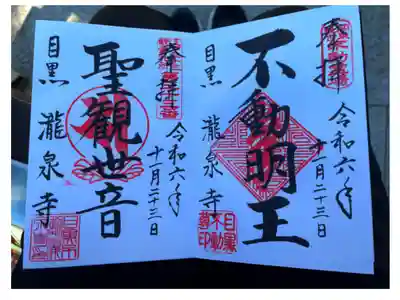 奉拝
令和六年
十一月二十三日
不動明王
目黒 瀧泉寺
目黒
不動
尊印
奉拝
令和六年
十一月二十三日
聖観世音
目黒 瀧泉寺